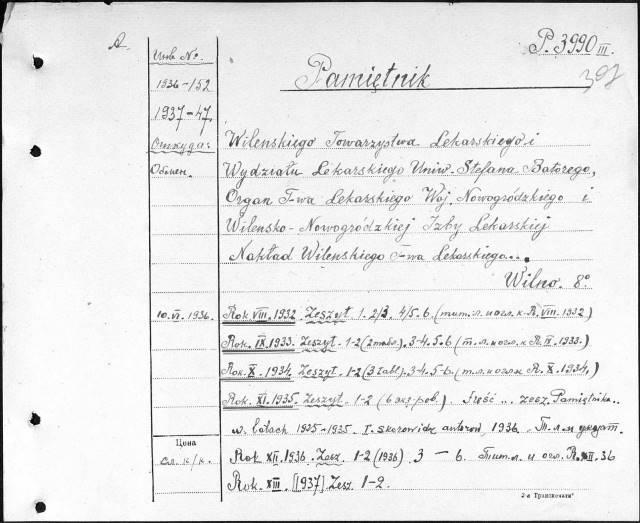 A.
P. 3990 III.
Инв. №
1936-152
1937-47.
Откуда:
Обмен.
Pamiętnik
Wileńskiego Towarzystwa Lekarskiego i
Wydziału Lekarskiego Uniw. Stefana Batorego,
Organ T-wa Lekarskiego Woj. Nowogródzkiego i
Wileńsko-Nowogródzkiej Izby Lekarskiej
Nakład Wileńskiego T-wa Lekarskiego...
Wilno. 8°
10.VI.1936. Rok VIII. 1932. Zeszyt. 1. 2/3. 4/5. 6. (тит. л. и огл. к R. VIII. 1932)
Rok IX. 1933. Zeszyt. 1-2 (2 табл.). 3-4. 5-6 (т. л. и огл. к R. IX. 1933.)
Rok. X. 1934. Zeszyt. 1-2 (3 tabl.). 3-4. 5-6 (т. л. и огл. к R. X. 1934.)
Rok. XI. 1935. Zeszyt. 1-2 (6 экз. Treść .. zesz. Pamiętnika..
w. latach 1925-1935. I. Skorowidz autorów, 1936. Т. л. и
Цена
сл. к/к.
Rok XII. 1936. Zesz. 1-2 (1936) 3 — 6. Тит. л. и огл. R. XII. 36
Rok. XIII. [1937] Zesz. 1-2.
2-я Транспечати